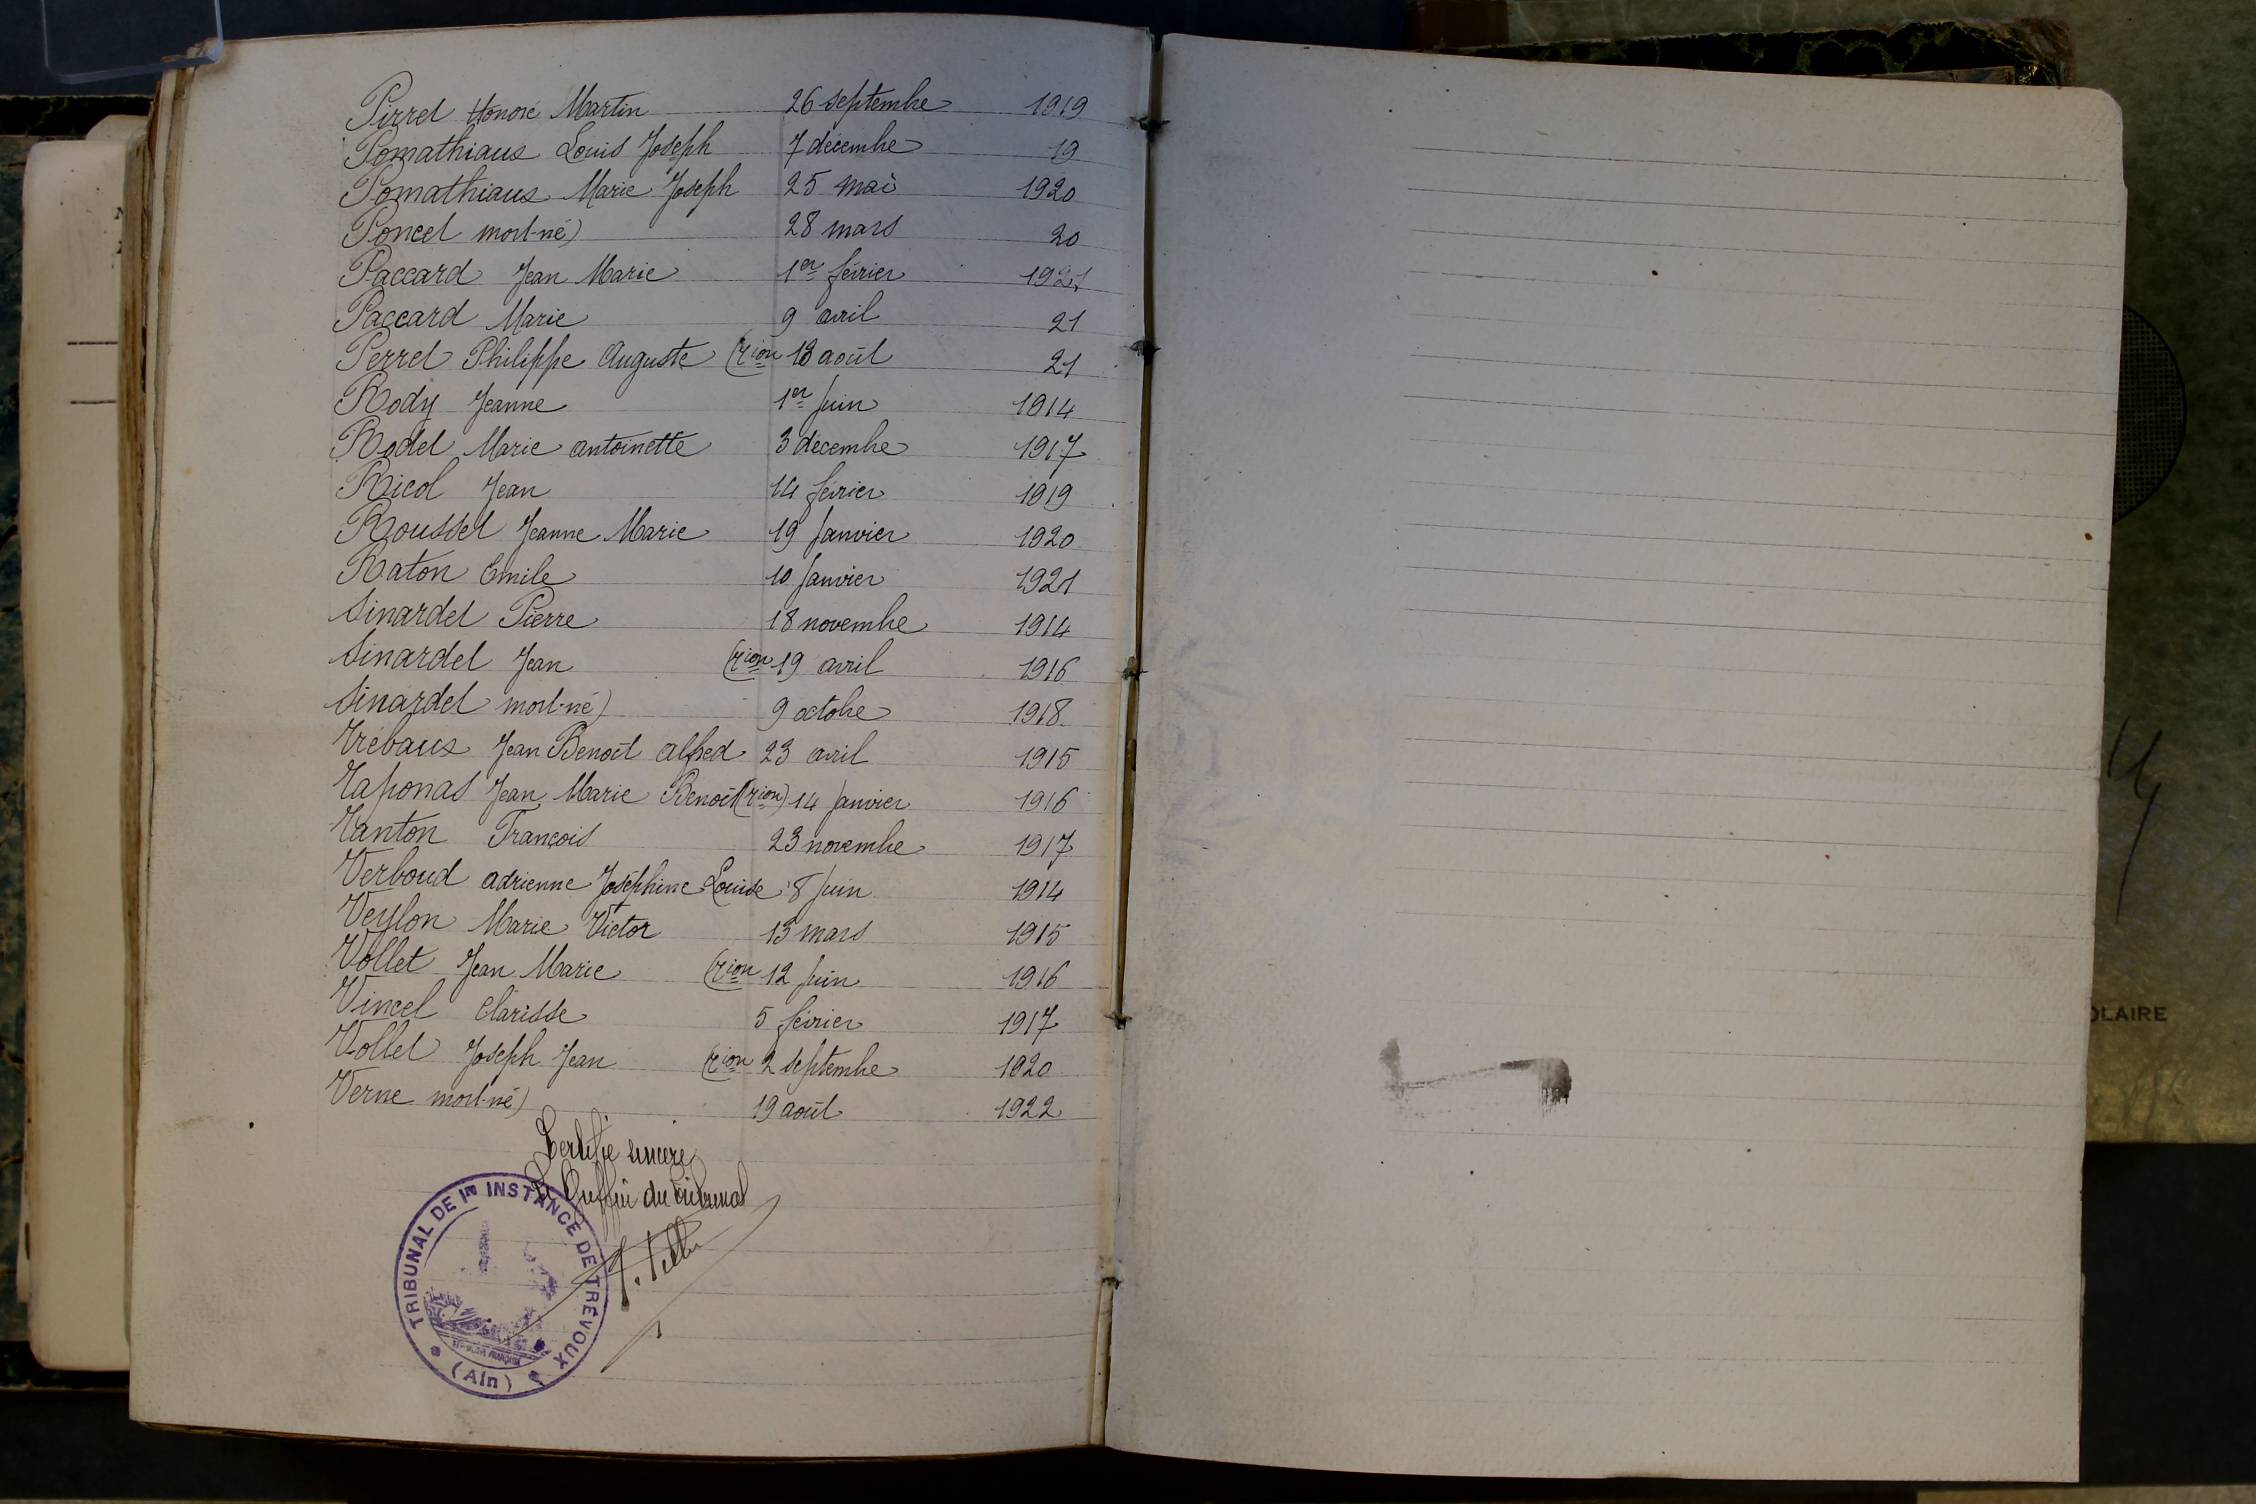 Pirret Honoré Martin 26 septembre 1919
Pomathiaux Louis Joseph 7 décembre 19
Pomathiaux Marie Joseph 25 mai 1920
Poncet mort-né) 28 mars 20
Paccard Jean Marie 1er février 1921
Paccard Marie 9 avril 21
Perret Philippe Auguste (Tion 18 août 21
Rody Jeanne 1er Juin 1914
Rodet Marie antoinette 3 décembre 1917
Ricol Jean 14 février 1919
Rousset Jeanne Marie 19 Janvier 1920
Raton Emile 10 Janvier 1921
Sinardet Pierre 18 novembre 1914
Sinardet Jean (Tion 19 avril 1916
Sinardet mort-né) 9 octobre 1918
Trébaux Jean Benoît alfred 23 avril 1915
Taponas Jean Marie Benoît (Tion) 14 Janvier 1916
Tanton François 23 novembre 1917
Verboud adrienne Joséphine Louise 8 Juin 1914
Veylon Marie Victor 13 mars 1915
Vollet Jean Marie (Tion 12 Juin 1916
Vincel Clarisse 5 février 1917
Vollet Joseph Jean (Tion 2 septembre 1920
Verne mort-né) 19 août 1922
Certifié sincère
Le Greffier du Tribunal
TRIBUNAL DE 1re INSTANCE DE TRÉVOUX
(Ain)
OLAIRE